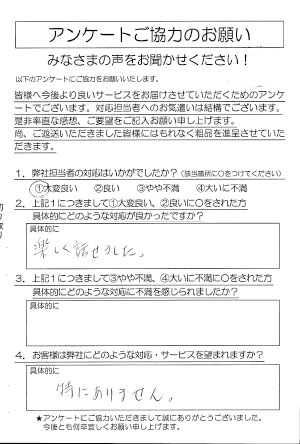 アンケートご協力のお願い
みなさまの声をお聞かせください！
以下のアンケートにご協力をお願いいたします。
皆様へ今後より良いサービスをお届けさせていただくためのアンケ
ートでございます。対応担当者へのお気遣いは結構でございます。
是非率直な感想、ご要望をご記入お願い申し上げます。
尚、ご返送いただきました皆様にはもれなく粗品を進呈させていた
だきます。
1．弊社担当者の対応はいかがでしたか？（該当箇所に○をつけてください）
①大変良い　②良い　③やや不満　④大いに不満
2．上記１につきまして①大変良い、②良いに○をされた方
具体的にどのような対応が良かったですか？
具体的に
楽しく話せました。
3．上記１につきまして③やや不満、④大いに不満に○をされた方
具体的にどのような対応に不満を感じられましたか？
具体的に
4．お客様は弊社にどのような対応・サービスを望まれますか？
具体的に
特にありません。
★アンケートにご協力いただきまして誠にありがとうございました。
今後とも何卒宜しくお願い申し上げます。